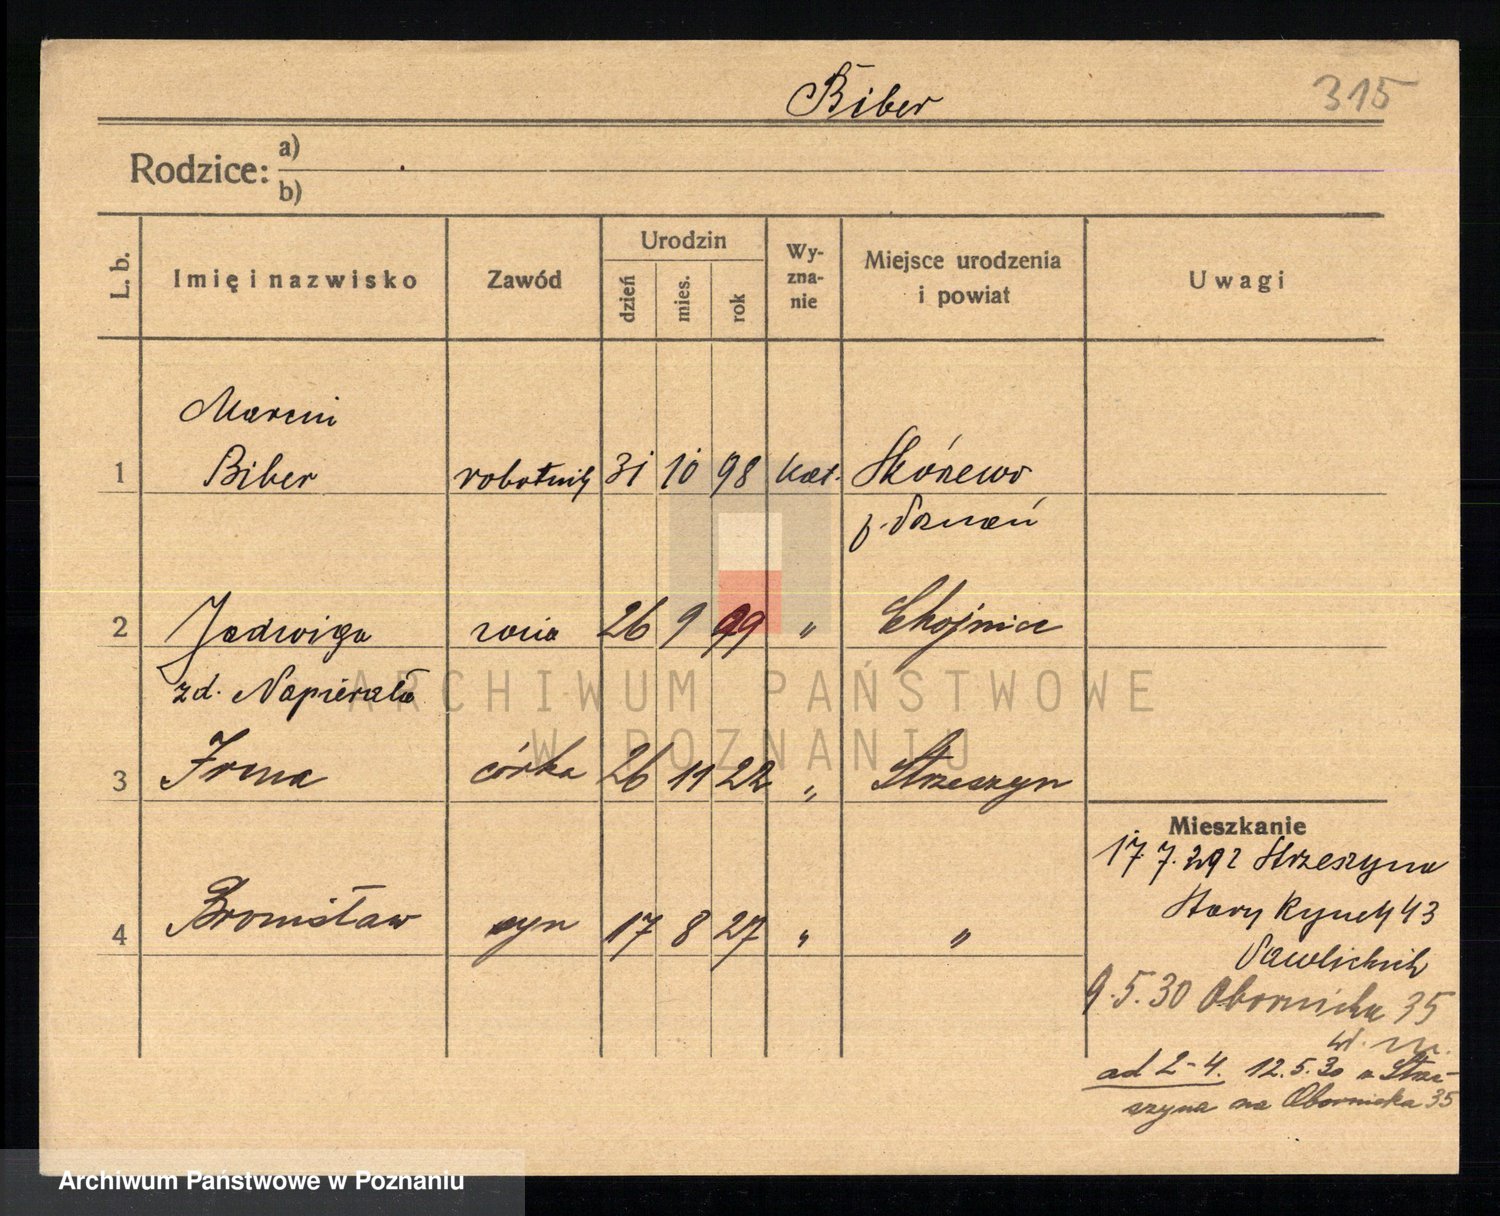 Biber
315
Rodzice: a)
b)
L. b.
Imię i nazwisko
Zawód
Urodzin
dzień
mies.
rok
Wy-
zna-
nie
Miejsce urodzenia
i powiat
Uwagi
Marcin
1 Biber robotnik 31 10 98 kat. Skórzewo
p. Poznań
2 Jadwiga żona 26 9 99 " Chojnice
zd. Napierała
3 Irena córka 26 11 22 " Strzeszyn
4 Bronisław syn 17 8 27 " "
Mieszkanie
17. 7. 29 z Strzeszyna
Stary Rynek 43
Pawlickich
9. 5. 30 Obornicka 35
ad 2-4. 12.5.30 z Strze-
szyna na Obornicka 35
ARCHIWUM PAŃSTWOWE
W POZNANIU
Archiwum Państwowe w Poznaniu